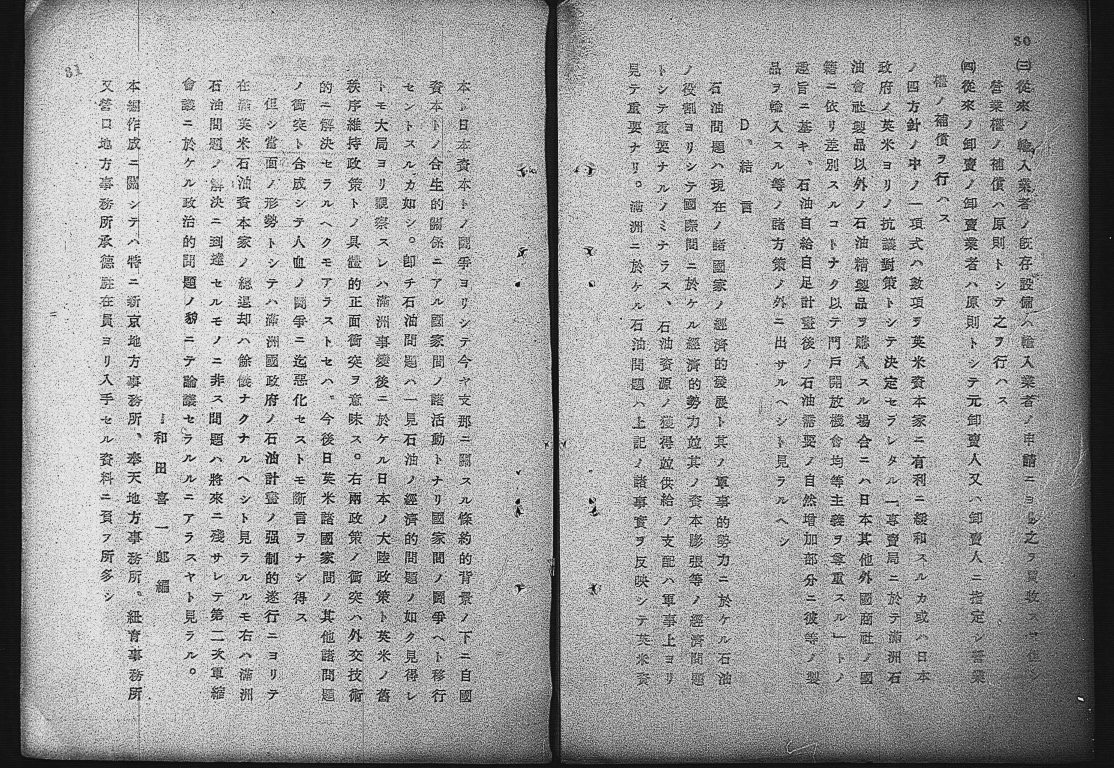 30
㈢從來ノ輸入業者ノ既存設備ハ輸入業者ノ申請ニヨリ之ヲ買收スヘ
營業權ノ補償ハ原則トシテ之ヲ行ハス
㈣從來ノ卸賣ノ卸賣業者ハ原則トシテ元卸賣人又ハ卸賣人ニ指定シ營業
權ノ補償ヲ行ハス
ノ四方針ノ中ノ一項式ハ數項ヲ英米資本家ニ有利ニ緩和スルカ或ハ日本
政府ノ英米ヨリノ抗議對策トシテ決定セラレタル「專賣局ニ於テ滿洲石
油會社製品以外ノ石油精製品ヲ購入スル場合ニハ日本其他外國商社ノ國
籍ニ依リ差別スルコトナク以テ門戸開放機會均等主義ヲ尊重スル」トノ
趣旨ニ基キ、石油自給自足計畫後ノ石油需要ノ自然增加部分ニ彼等ノ製
品ヲ輸入スル等ノ諸方策ノ外ニ出サルヘシト見ラルヘシ
D、結言
石油問題ハ現在ノ諸國家ノ經濟的發展ト其ノ軍事的勢力ニ於ケル石油
ノ役割ヨリシテ國際間ニ於ケル經濟的勢力竝其ノ資本膨張等ノ經濟問題
トシテ重要ナルノミナラス、石油資源ノ獲得竝供給ノ支配ハ軍事上ヨリ
見テ重要ナリ。滿洲ニ於ケル石油問題ハ上記ノ諸事實ヲ反映シテ英米資
31
本ト日本資本トノ鬪爭ヨリシテ今ヤ支那ニ關スル條約的背景ノ下ニ自國
資本トノ合生的關係ニアル國家間ノ諸活動トナリ國家間ノ鬪爭ヘト移行
セントスルカ如シ。卽チ石油問題ハ一見石油ノ經濟的問題ノ如ク見得レ
トモ大局ヨリ觀察スレハ滿洲事變後ニ於ケル日本ノ大陸政策ト英米ノ舊
秩序維持政策トノ具體的正面衝突ヲ意味ス。右兩政策ノ衝突ハ外交技術
的ニ解決セラルヘクモアラストセハ、今後日英米諸國家間ノ其他諸問題
ノ衝突ト合成シテ人血ノ鬪爭ニ迄惡化セストモ斷言ヲナシ得ス
但シ當面ノ形勢トシテハ滿洲國政府ノ石油計畫ノ强制的遂行ニヨリテ
在滿英米石油資本家ノ總退却ハ餘儀ナクナルヘシト見ラルルモ右ハ滿洲
石油問題ノ解決ニ到達セルモノニ非ス問題ハ將來ニ殘サレテ第二次軍縮
會議ニ於ケル政治的問題ノ貌ニテ論議セラルルニアラスヤト見ラル。
和田喜一郞編
本編作成ニ關シテハ特ニ新京地方事務所、奉天地方事務所、紐育事務所
又營口地方事務所承德駐在員ヨリ入手セル資料ニ負フ所多シ